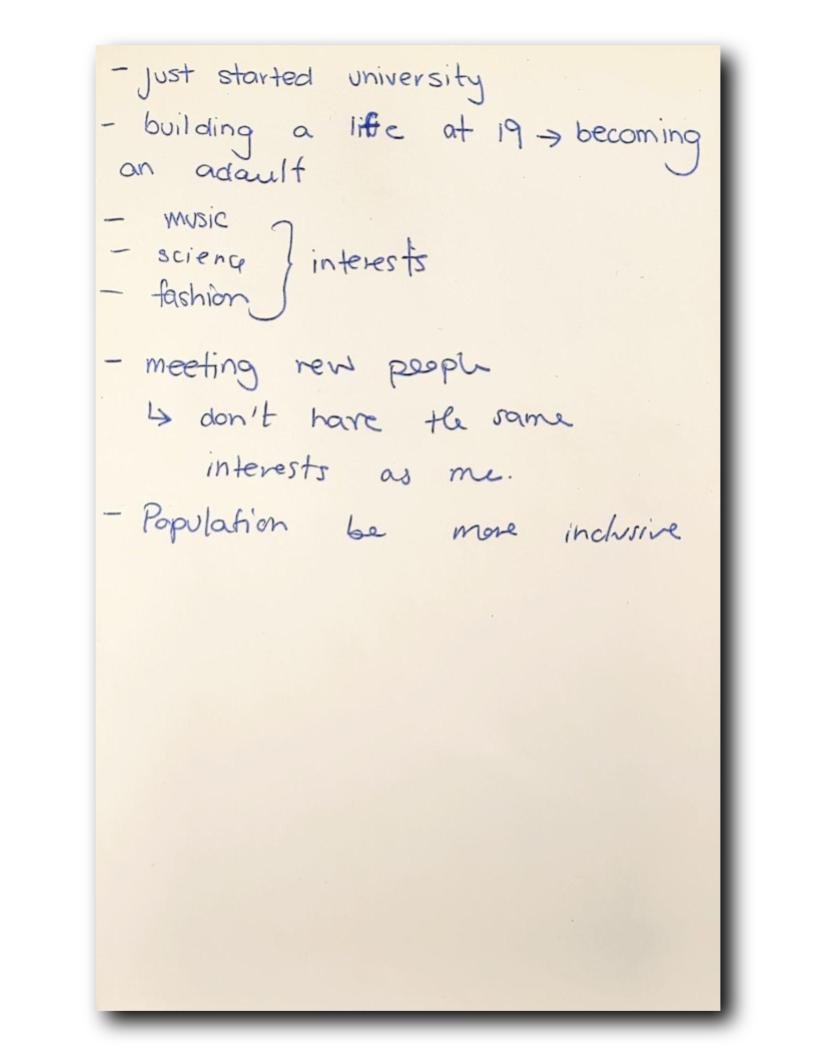 - just started university
- building a life at 19 → becoming
an adault
- music
- science } interests
- fashion
- meeting new people
↳ don't have the same
interests as me.
- Population be more inclusive